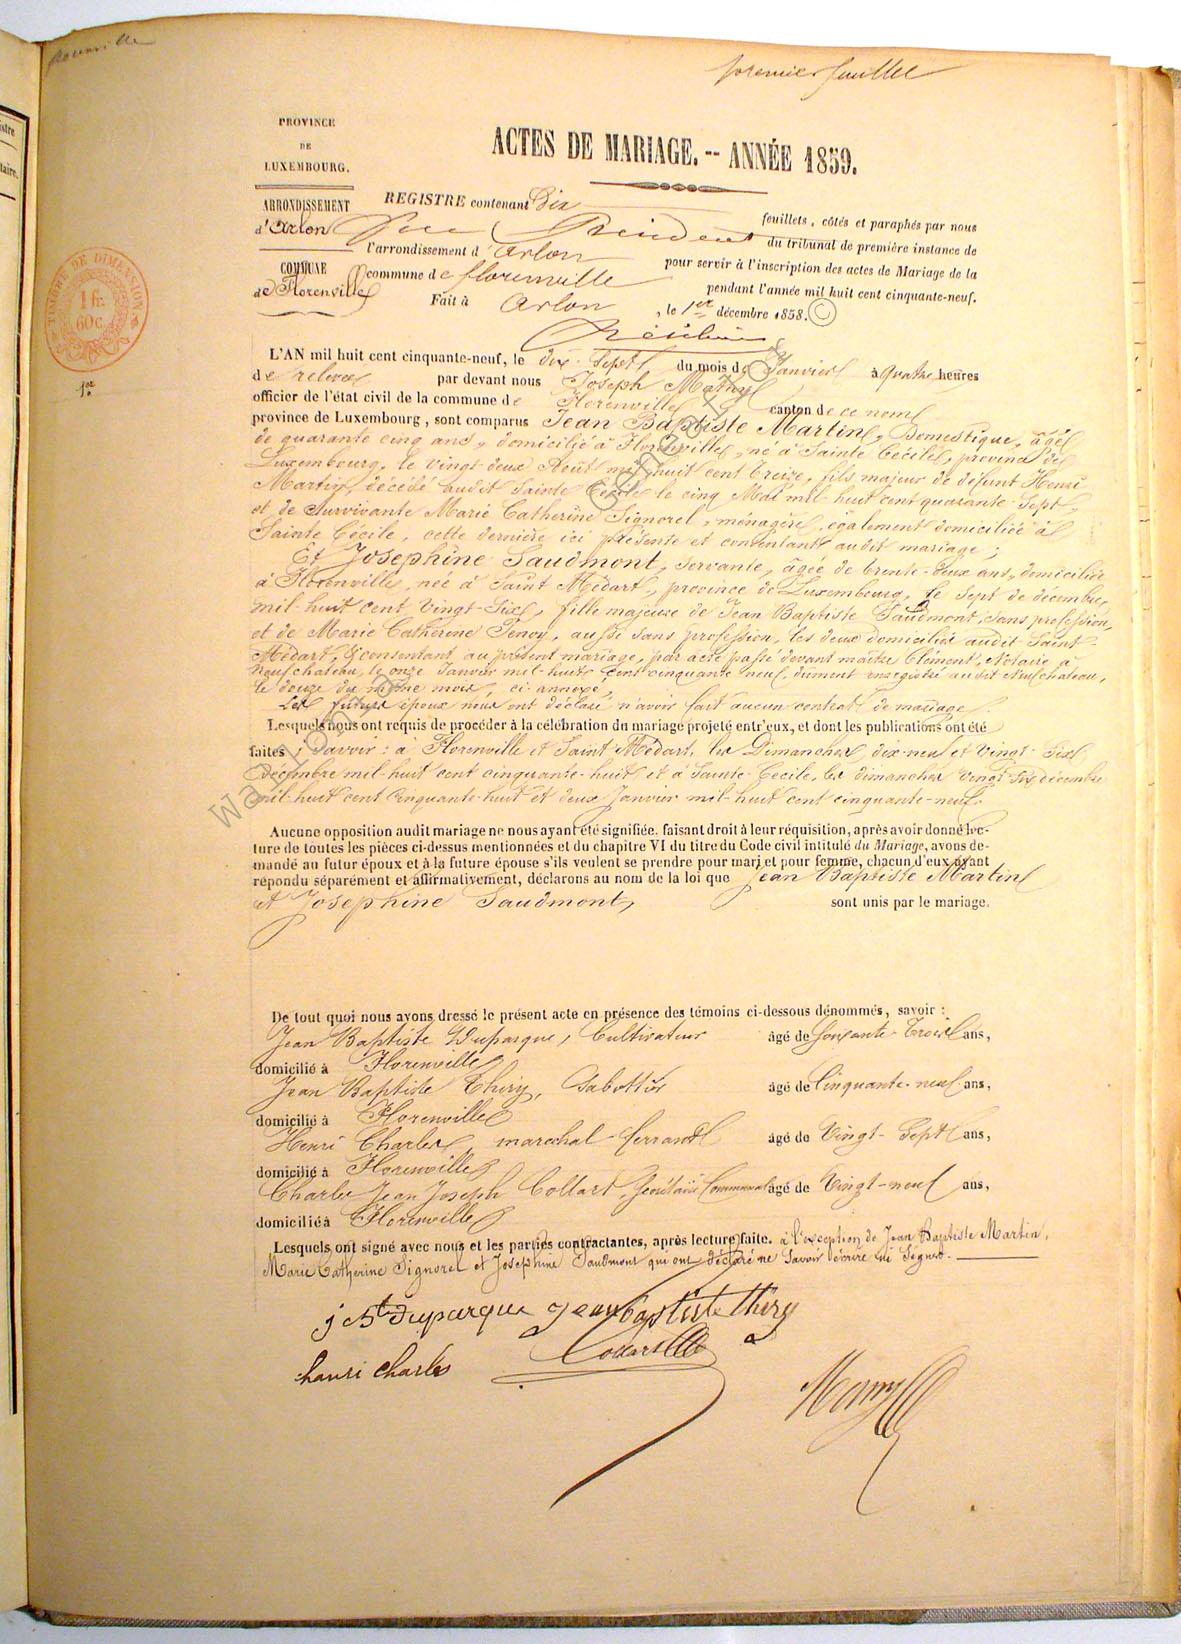 Florenville
premier feuillet
PROVINCE
DE
LUXEMBOURG.
ACTES DE MARIAGE. -- ANNÉE 1859.
ARRONDISSEMENT
d'Arlon
COMMUNE
de Florenville
REGISTRE contenant Dix feuillets, côtés et paraphés par nous
President du tribunal de première instance de
l'arrondissement d'Arlon pour servir à l'inscription des actes de Mariage de la
commune de florenville pendant l'année mil huit cent cinquante-neuf.
Fait à Arlon, le 1er décembre 1858.
TIMBRE DE DIMENSION
1 fr.
60 c.
1er
L'AN mil huit cent cinquante-neuf, le dix-Sept du mois de Janvier à quatre heures
de relevée par devant nous Joseph Mathy
officier de l'état civil de la commune de Florenville canton de ce nom
province de Luxembourg, sont comparus Jean Baptiste Martin, Domestique, âgé
de quarante cinq ans, domicilié à Florenville, né à Sainte Cécile, province de
Luxembourg, le vingt-deux Août mil huit cent treize, fils majeur de défunt Henri
Martin, décédé audit Sainte Cécile le cinq Mai mil-huit cent quarante-Sept,
et de Survivante Marie Catherine Signorel, ménagère, également domiciliée à
Sainte Cécile, cette dernière ici présente et consentant audit mariage;
Et Josephine Saudmont, servante, âgée de trente-deux ans, domiciliée
à Florenville, née à Saint Médart, province de Luxembourg, le Sept de decembre
mil-huit cent vingt-Six, fille majeure de Jean Baptiste Saudmont, sans profession,
et de Marie Catherine Penoy, aussi sans profession, les deux domiciliés audit Saint-
Médart, & consentant au présent mariage, par acte passé devant maître Clément, Notaire à
Neufchateau, le onze Janvier mil-huit cent cinquante neuf, dument enregistré audit Neufchateau,
le douze du même mois, ci-annexé,
Les futurs époux nous ont déclaré n'avoir fait aucun contrat de mariage.
Lesquels nous ont requis de procéder à la célébration du mariage projeté entr'eux, et dont les publications ont été
faites; Savoir: à Florenville et Saint Médart, les Dimanches dix-neuf et vingt-Six
Décembre mil-huit cent cinquante-huit et à Sainte-Cecile, les dimanches vingt-six décembre
mil-huit cent cinquante-huit et deux Janvier mil-huit cent cinquante-neuf.
Aucune opposition audit mariage ne nous ayant été signifiée, faisant droit à leur réquisition, après avoir donné lec-
ture de toutes les pièces ci-dessus mentionnées et du chapitre VI du titre du Code civil intitulé du Mariage, avons de-
mandé au futur époux et à la future épouse s'ils veulent se prendre pour mari et pour femme, chacun d'eux ayant
répondu séparément et affirmativement, déclarons au nom de la loi que Jean Baptiste Martin
et Josephine Saudmont, sont unis par le mariage.
De tout quoi nous avons dressé le présent acte en présence des témoins ci-dessous dénommés, savoir :
Jean Baptiste Duparque, Cultivateur âgé de Soixante-Trois ans,
domicilié à Florenville
Jean Baptiste Thiry, Sabottier âgé de Cinquante-neuf ans,
domicilié à Florenville
Henri Charles, marechal-ferrant âgé de Vingt-Sept ans,
domicilié à Florenville
Charles Jean Joseph Collart, Secrétaire Communal âgé de Vingt-neuf ans,
domicilié à Florenville
Lesquels ont signé avec nous et les parties contractantes, après lecture faite. à l'exception de Jean Baptiste Martin,
Marie Catherine Signorel et Josephine Saudmont qui ont déclaré ne Savoir écrire ni Signer.
j Bte Duparque jean baptiste thiry
henri charles Collart
Mathy